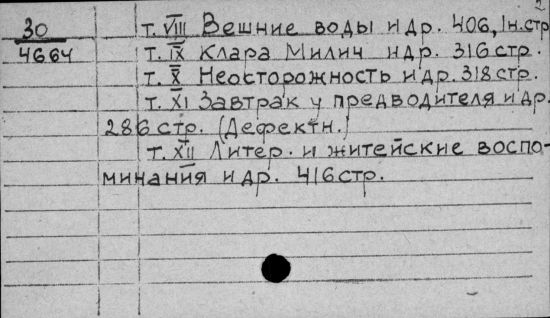 2
30 т. VIII Вешние воды и др. 406, 1н.стр
4664 т. IX Клара Милич и др. 316 стр.
т. X Неосторожность и др. 318 стр.
т. XI Завтрак у предводителя и др.
286 стр. (Дефектн.)
т. XII Литер. и житейские воспо-
минания и др. 416 стр.